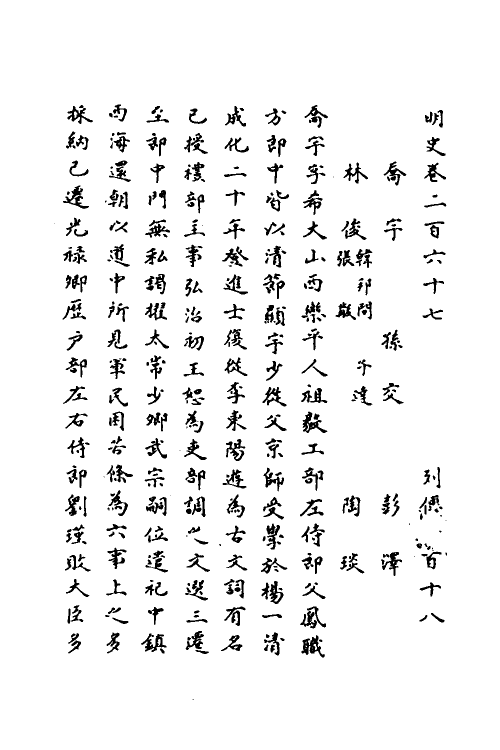 明史卷二百六十七 列傳 百十八
喬宇 孫交 彭澤
林俊 韓邦問 張黻 子達 陶琰
喬宇字希大山西樂平人祖毅工部左侍郎父鳳職
方郎中皆以清節顯宇少從父京師受學於楊一清
成化二十年登進士復從李東陽遊為古文詞有名
已授禮部主事弘治初王恕為吏部調之文選三遷
至郎中門無私謁擢太常少卿武宗嗣位遣祀中鎮
西海還朝以道中所見軍民困苦條為六事上之多
採納已遷光祿卿歷戶部左右侍郎劉瑾敗大臣多